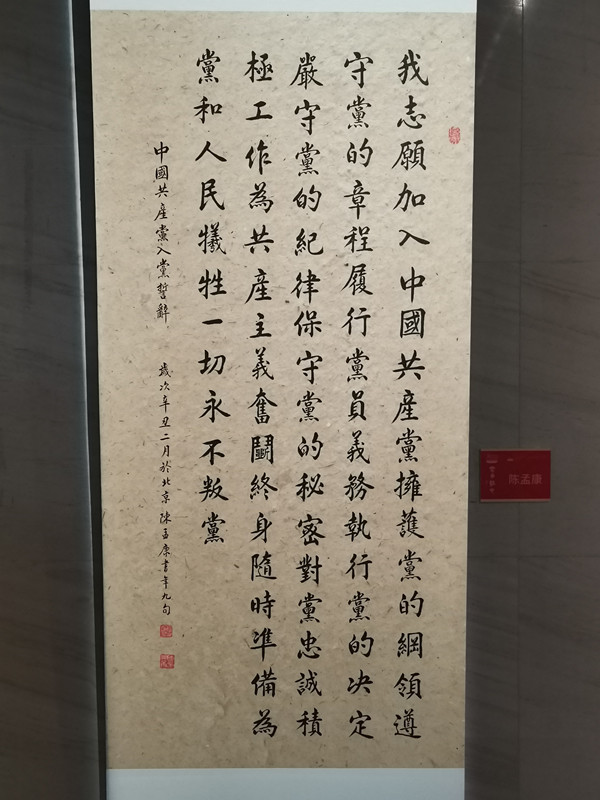 我志願加入中國共産黨擁護黨的綱領遵
守黨的章程履行黨員義務執行黨的决定
嚴守黨的紀律保守黨的秘密對黨忠誠積
極工作為共産主義奮鬭終身隨時準備為
黨和人民犧牲一切永不叛黨
中國共産黨入黨誓辭
歲次辛丑二月於北京陳孟康書年九旬
陈孟康